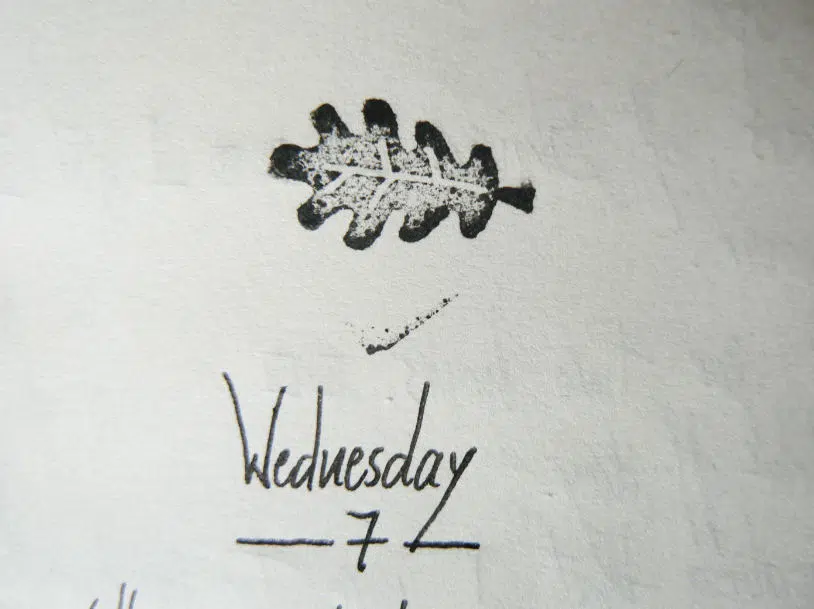 Wednesday
— 7 —